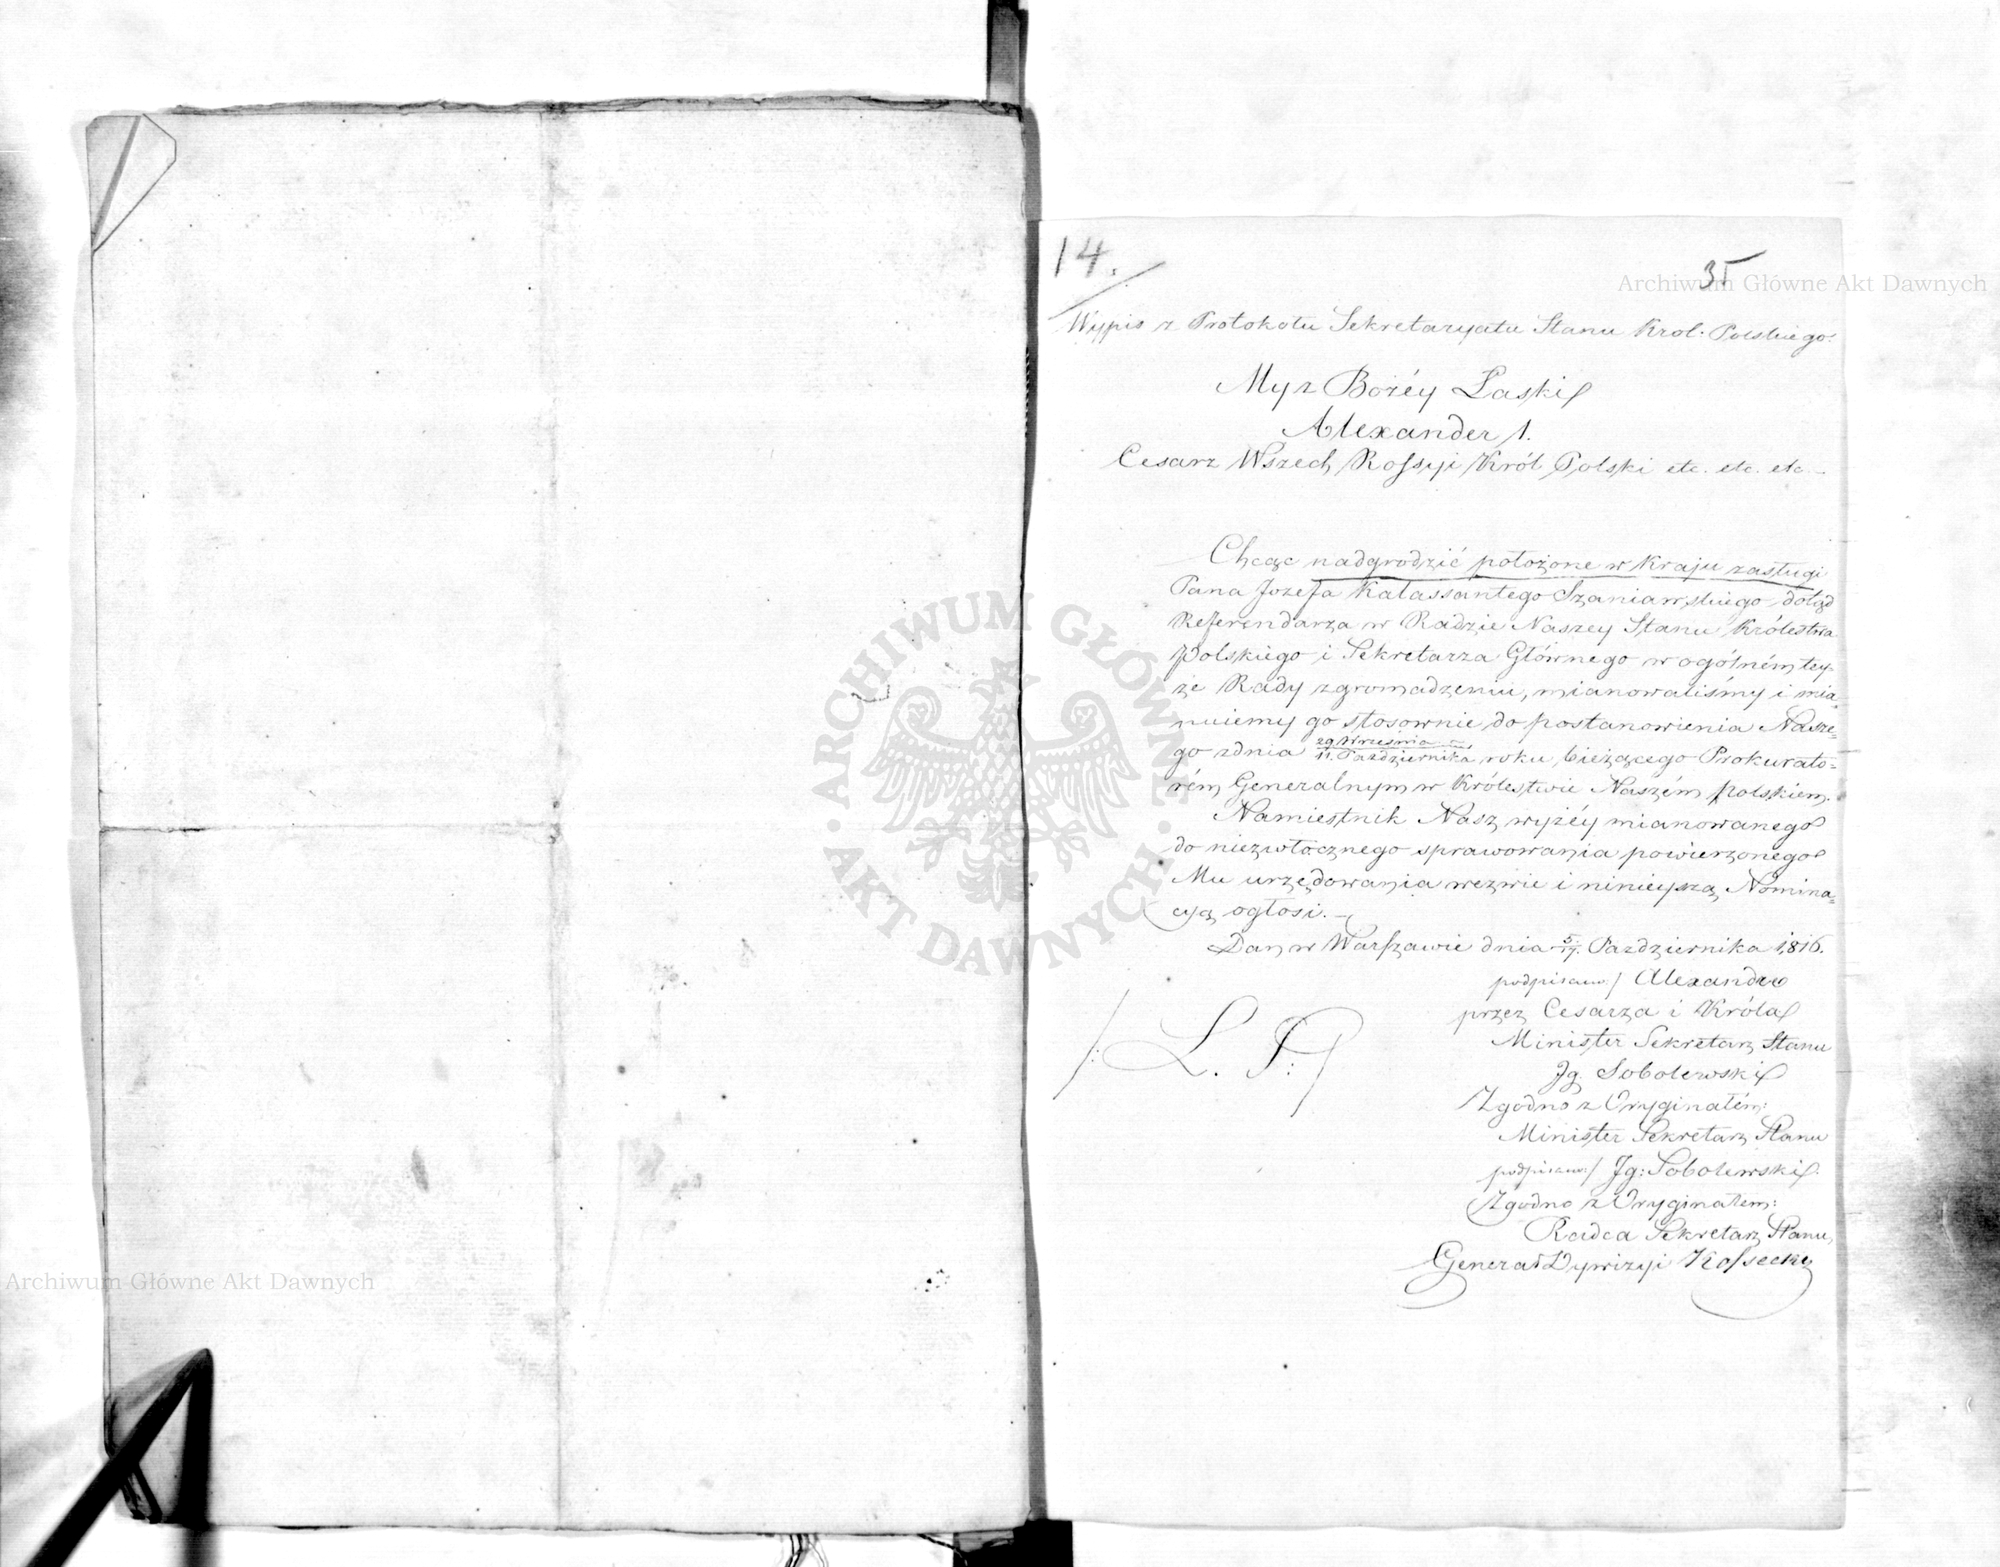 14.
35
Wypis z Protokołu Sekretaryatu Stanu Król: Polskiego.
My z Bożéy Łaski
Alexander 1.
Cesarz Wszech Rossyi Król Polski etc. etc. etc.
Chcąc nadgrodzić położone w Kraju zasługi
Pana Jozefa Kalassantego Szaniawskiego, dotąd
Referendarza w Radzie Naszey Stanu Królestwa
Polskiego i Sekretarza Głównego w ogólném tey-
że Rady zgromadzeniu, mianowaliśmy i mia-
nuiemy go stosownie do postanowienia Nasze=
go z dnia 29 Września / 11. Października roku bieżącego Prokurato=
rém Generalnym w Królestwie Naszém Polskiem.
Namiestnik Nasz wyżéy mianowanego
do niezwłocznego sprawowania powierzonego
Mu urzędowania wezwie i ninieyszą Nomina=
cyą ogłosi. –
Dan w Warszawie dnia 5/17. Października 1816.
podpisano:/ Alexander
przez Cesarza i Króla
/: L. S: /
Minister Sekretarz Stanu
Jg. Sobolewski
Zgodno z Oryginałém:
Minister Sekretarz Stanu
podpisano:/ Jg: Sobolewski.
Zgodno z Oryginałem:
Radca Sekretarz Stanu,
Generał Dywizyi Kossecki
Archiwum Główne Akt Dawnych
Archiwum Główne Akt Dawnych
ARCHIWUM GŁÓWNE · AKT DAWNYCH ·